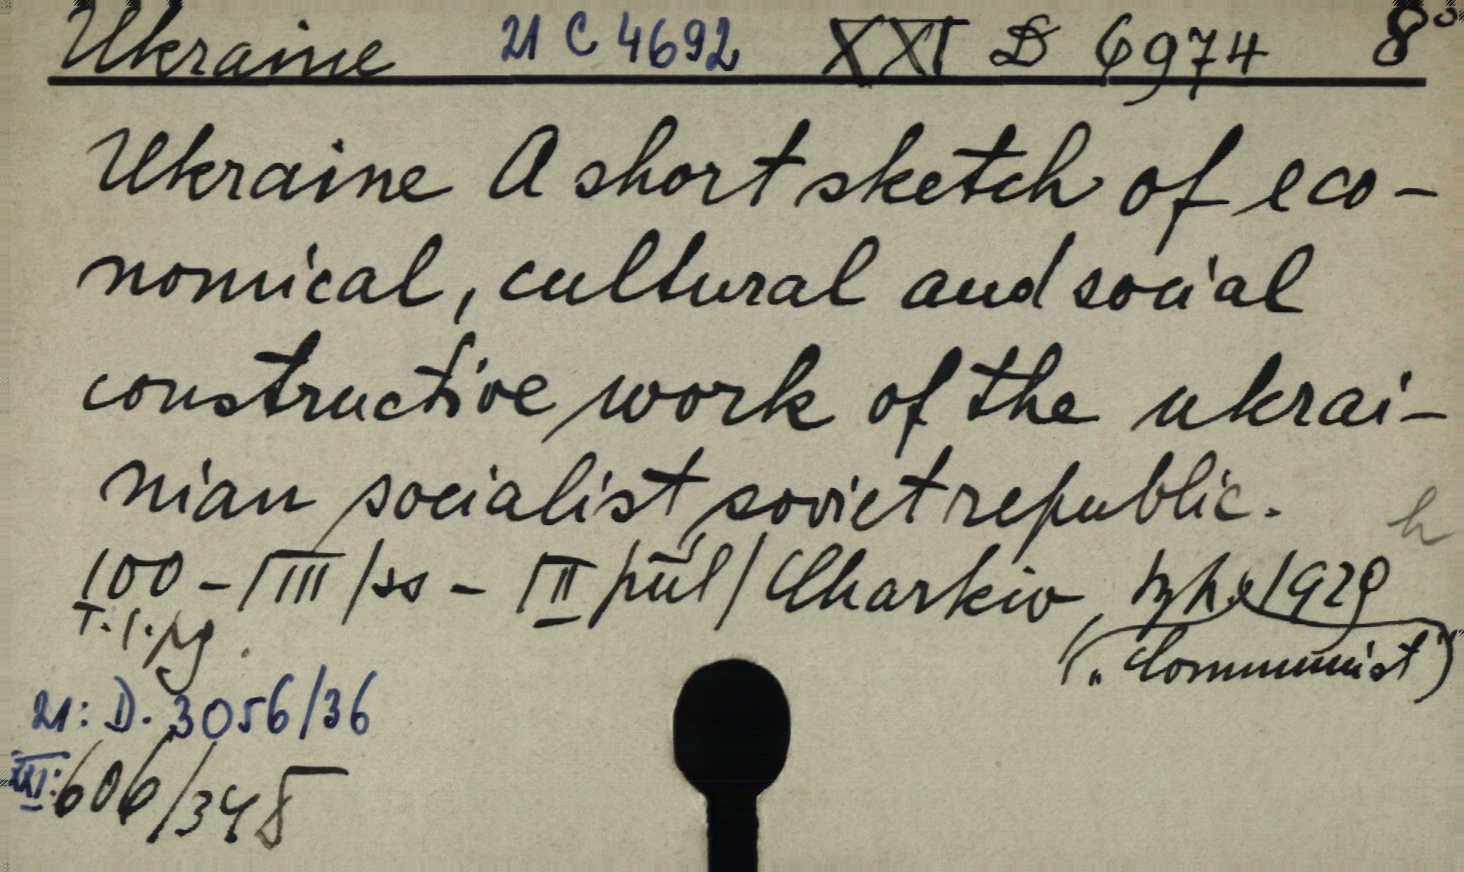 Ukraine 21 C 4692 XXI D 6974 8°
Ukraine A short sketch of eco-
nomical, cultural and social
constructive work of the ukrai-
nian socialist soviet republic.
h
100 - III / ss - II příl / Charkiv, 1929
T. l. pg.
("Communist")
21: D. 3056/36
XXI: 606/345